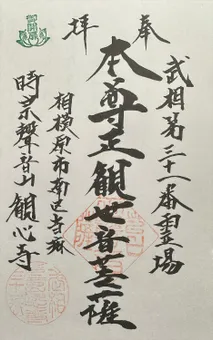 奉拝
武相第三十一番霊場
本尊正観世音菩薩
相模原市南区寺
時宗 聲音山 観心寺